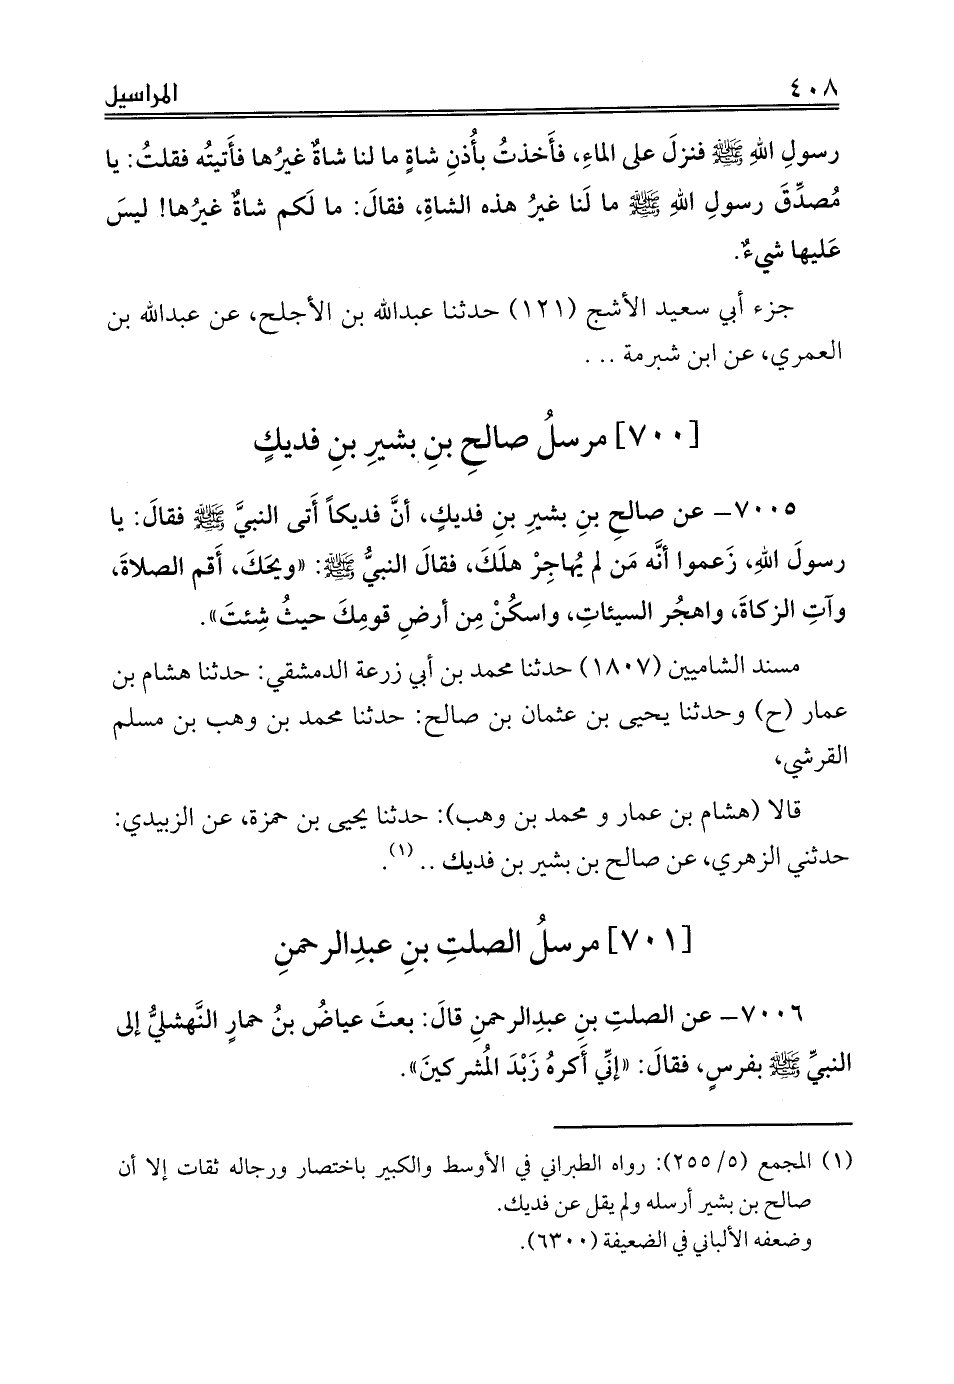 ٤٠٨
المراسيل
رسولِ اللهِ ﷺ فنزلَ على الماءِ، فأَخذتُ بأُذنِ شاةٍ ما لنا شاةٌ غيرُها فأَتيتُه فقلتُ: يا
مُصدِّقَ رسولِ اللهِ ﷺ ما لَنا غيرُ هذه الشاةِ، فقالَ: ما لَكم شاةٌ غيرُها! ليسَ
عَليها شيءٌ.
جزء أبي سعيد الأشج (١٢١) حدثنا عبدالله بن الأجلح، عن عبدالله بن
العمري، عن ابن شبرمة ...
[٧٠٠] مرسلُ صالحِ بنِ بشيرِ بنِ فديكٍ
٧٠٠٥– عن صالحِ بنِ بشيرِ بنِ فديكٍ، أنَّ فديكاً أَتى النبيَّ ﷺ فقالَ: يا
رسولَ اللهِ، زَعموا أنَّه مَن لم يُهاجِرْ هلَكَ، فقالَ النبيُّ ﷺ: «ويحَكَ، أَقم الصلاةَ،
وآتِ الزكاةَ، واهجُر السيئاتِ، واسكُنْ مِن أرضِ قومِكَ حيثُ شِئتَ».
مسند الشاميين (١٨٠٧) حدثنا محمد بن أبي زرعة الدمشقي: حدثنا هشام بن
عمار (ح) وحدثنا يحيى بن عثمان بن صالح: حدثنا محمد بن وهب بن مسلم
القرشي،
قالا (هشام بن عمار و محمد بن وهب): حدثنا يحيى بن حمزة، عن الزبيدي:
حدثني الزهري، عن صالح بن بشير بن فديك .. (١).
[٧٠١] مرسلُ الصلتِ بنِ عبدِالرحمنِ
٧٠٠٦– عن الصلتِ بنِ عبدِالرحمنِ قالَ: بعثَ عياضُ بنُ حمارٍ النَّهشليُّ إلى
النبيِّ ﷺ بفرسٍ، فقالَ: «إنِّي أَكرهُ زَبْدَ المُشركينَ».
(١) المجمع (٥/ ٢٥٥): رواه الطبراني في الأوسط والكبير باختصار ورجاله ثقات إلا أن
صالح بن بشير أرسله ولم يقل عن فديك.
وضعفه الألباني في الضعيفة (٦٣٠٠).